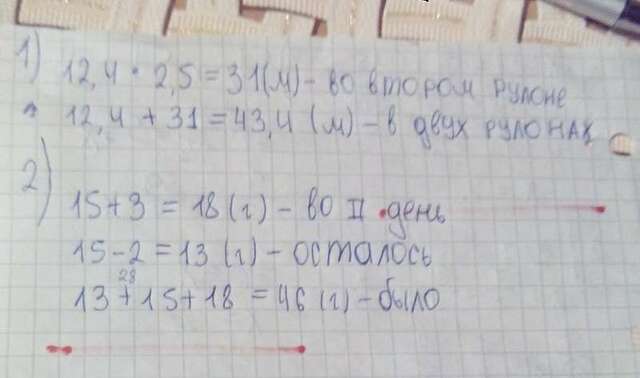 1) 12,4 · 2,5 = 31 (м) - во втором рулоне
12,4 + 31 = 43,4 (м) - в двух рулонах
2)
15 + 3 = 18 (г) - во II день
15 - 2 = 13 (г) - осталось
28
13 + 15 + 18 = 46 (г) - было